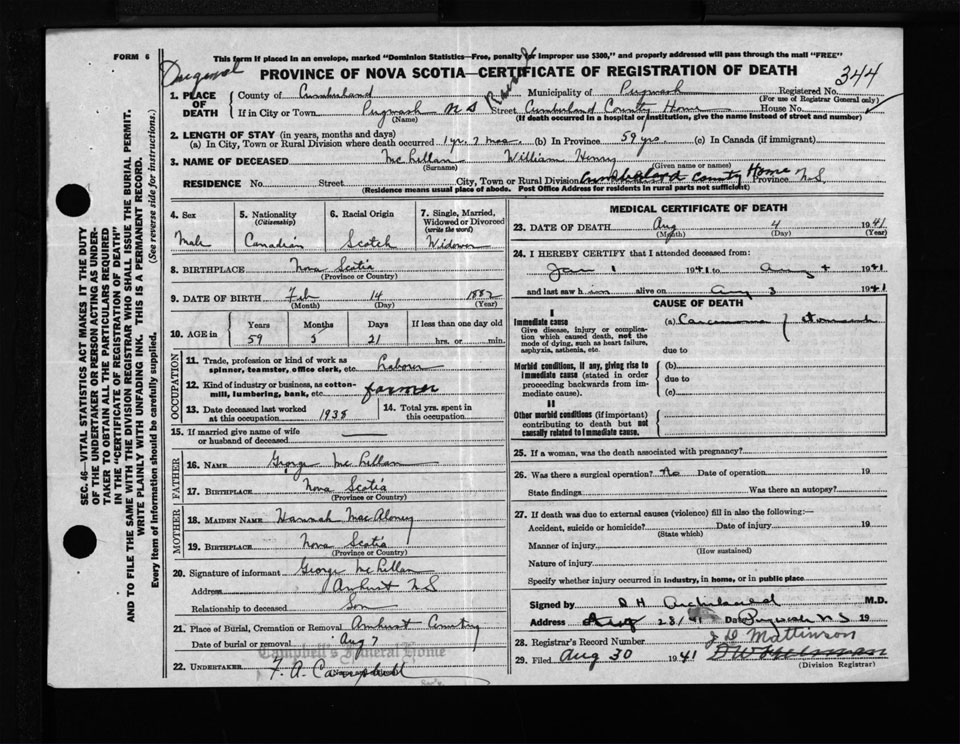 FORM 6
This form if placed in an envelope, marked "Dominion Statistics—Free, penalty for improper use $300," and properly addressed will pass through the mail "FREE"
Original
PROVINCE OF NOVA SCOTIA—CERTIFICATE OF REGISTRATION OF DEATH
344
1. PLACE OF DEATH
County of Cumberland Municipality of Pugwash Registered No.
(For use of Registrar General only)
If in City or Town Pugwash N S Street Cumberland County Home House No.
(Name) (If death occurred in a hospital or institution, give the name instead of street and number)
2. LENGTH OF STAY (in years, months and days)
(a) In City, Town or Rural Division where death occurred 1 yr. 7 mos. (b) In Province 59 yrs. (c) In Canada (if immigrant)
3. NAME OF DECEASED McLellan William Henry
(Surname) (Given name or names)
RESIDENCE No. Street City, Town or Rural Division Cumberland County Home Province N.S.
(Residence means usual place of abode. Post Office Address for residents in rural parts not sufficient)
4. Sex Male
5. Nationality (Citizenship) Canadian
6. Racial Origin Scotch
7. Single, Married, Widowed or Divorced (write the word) Widower
8. BIRTHPLACE Nova Scotia
(Province or Country)
9. DATE OF BIRTH Feb 14 1882
(Month) (Day) (Year)
10. AGE in Years Months Days If less than one day old
59 5 21 hrs. or min.
OCCUPATION
11. Trade, profession or kind of work as spinner, teamster, office clerk, etc. Labour
12. Kind of industry or business, as cotton-mill, lumbering, bank, etc. farmer
13. Date deceased last worked at this occupation 1938
14. Total yrs. spent in this occupation
15. If married give name of wife or husband of deceased
FATHER
16. NAME George McLellan
17. BIRTHPLACE Nova Scotia
(Province or Country)
MOTHER
18. MAIDEN NAME Hannah MacAloney
19. BIRTHPLACE Nova Scotia
(Province or Country)
20. Signature of informant George McLellan
Address Amherst N S
Relationship to deceased Son
21. Place of Burial, Cremation or Removal Amherst Country
Date of burial or removal Aug 7
Campbell's Funeral Home
22. UNDERTAKER F. A. Campbell
MEDICAL CERTIFICATE OF DEATH
23. DATE OF DEATH Aug 4 1941
(Month) (Day) (Year)
24. I HEREBY CERTIFY that I attended deceased from:
Jan 1 1941 to Aug 4 1941
and last saw him alive on Aug 3 1941
CAUSE OF DEATH
I
Immediate cause (a) Carcinoma of stomach
Give disease, injury or complication which caused death, not the mode of dying, such as heart failure, asphyxia, asthenia, etc.
due to
Morbid conditions, if any, giving rise to immediate cause (stated in order proceeding backwards from immediate cause).
(b)
due to
(c)
II
Other morbid conditions (if important) contributing to death but not causally related to immediate cause.
25. If a woman, was the death associated with pregnancy?
26. Was there a surgical operation? No Date of operation 19
State findings Was there an autopsy?
27. If death was due to external causes (violence) fill in also the following:—
Accident, suicide or homicide? Date of injury 19
(State which)
Manner of injury
(How sustained)
Nature of injury
Specify whether injury occurred in industry, in home, or in public place
Signed by D H Archibald M.D.
Address Aug 28/41 Date Pugwash N S 19
28. Registrar's Record Number J D Mattinson
29. Filed Aug 30 1941
(Division Registrar)
SEC. 46—VITAL STATISTICS ACT MAKES IT THE DUTY OF THE UNDERTAKER OR PERSON ACTING AS UNDERTAKER TO OBTAIN ALL THE PARTICULARS REQUIRED IN THE "CERTIFICATE OF REGISTRATION OF DEATH" AND TO FILE THE SAME WITH THE DIVISION REGISTRAR WHO SHALL ISSUE THE BURIAL PERMIT.
WRITE PLAINLY WITH UNFADING INK. THIS IS A PERMANENT RECORD.
Every item of information should be carefully supplied. (See reverse side for instructions.)